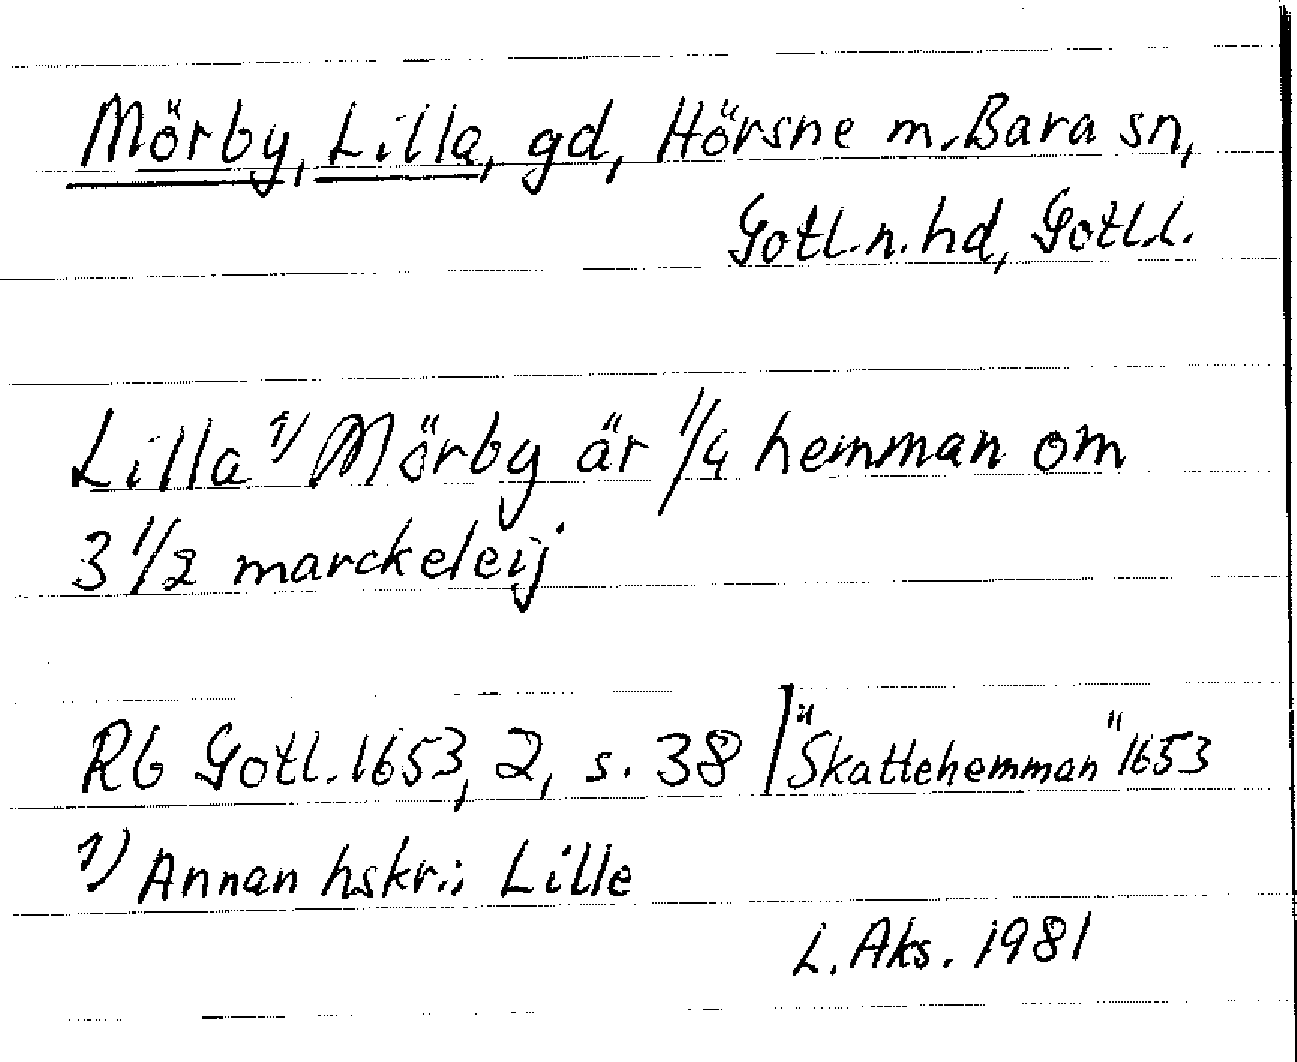 Mörby, Lilla, gd, Hörsne m. Bara sn,
Gotl. n. hd, Gotl. l.
Lilla 1) Mörby är 1/4 hemman om
3 1/2 marckeleij
Rb Gotl. 1653, 2, s. 38 | "Skattehemman" 1653
1) Annan hskr.: Lille
L. Aks. 1981